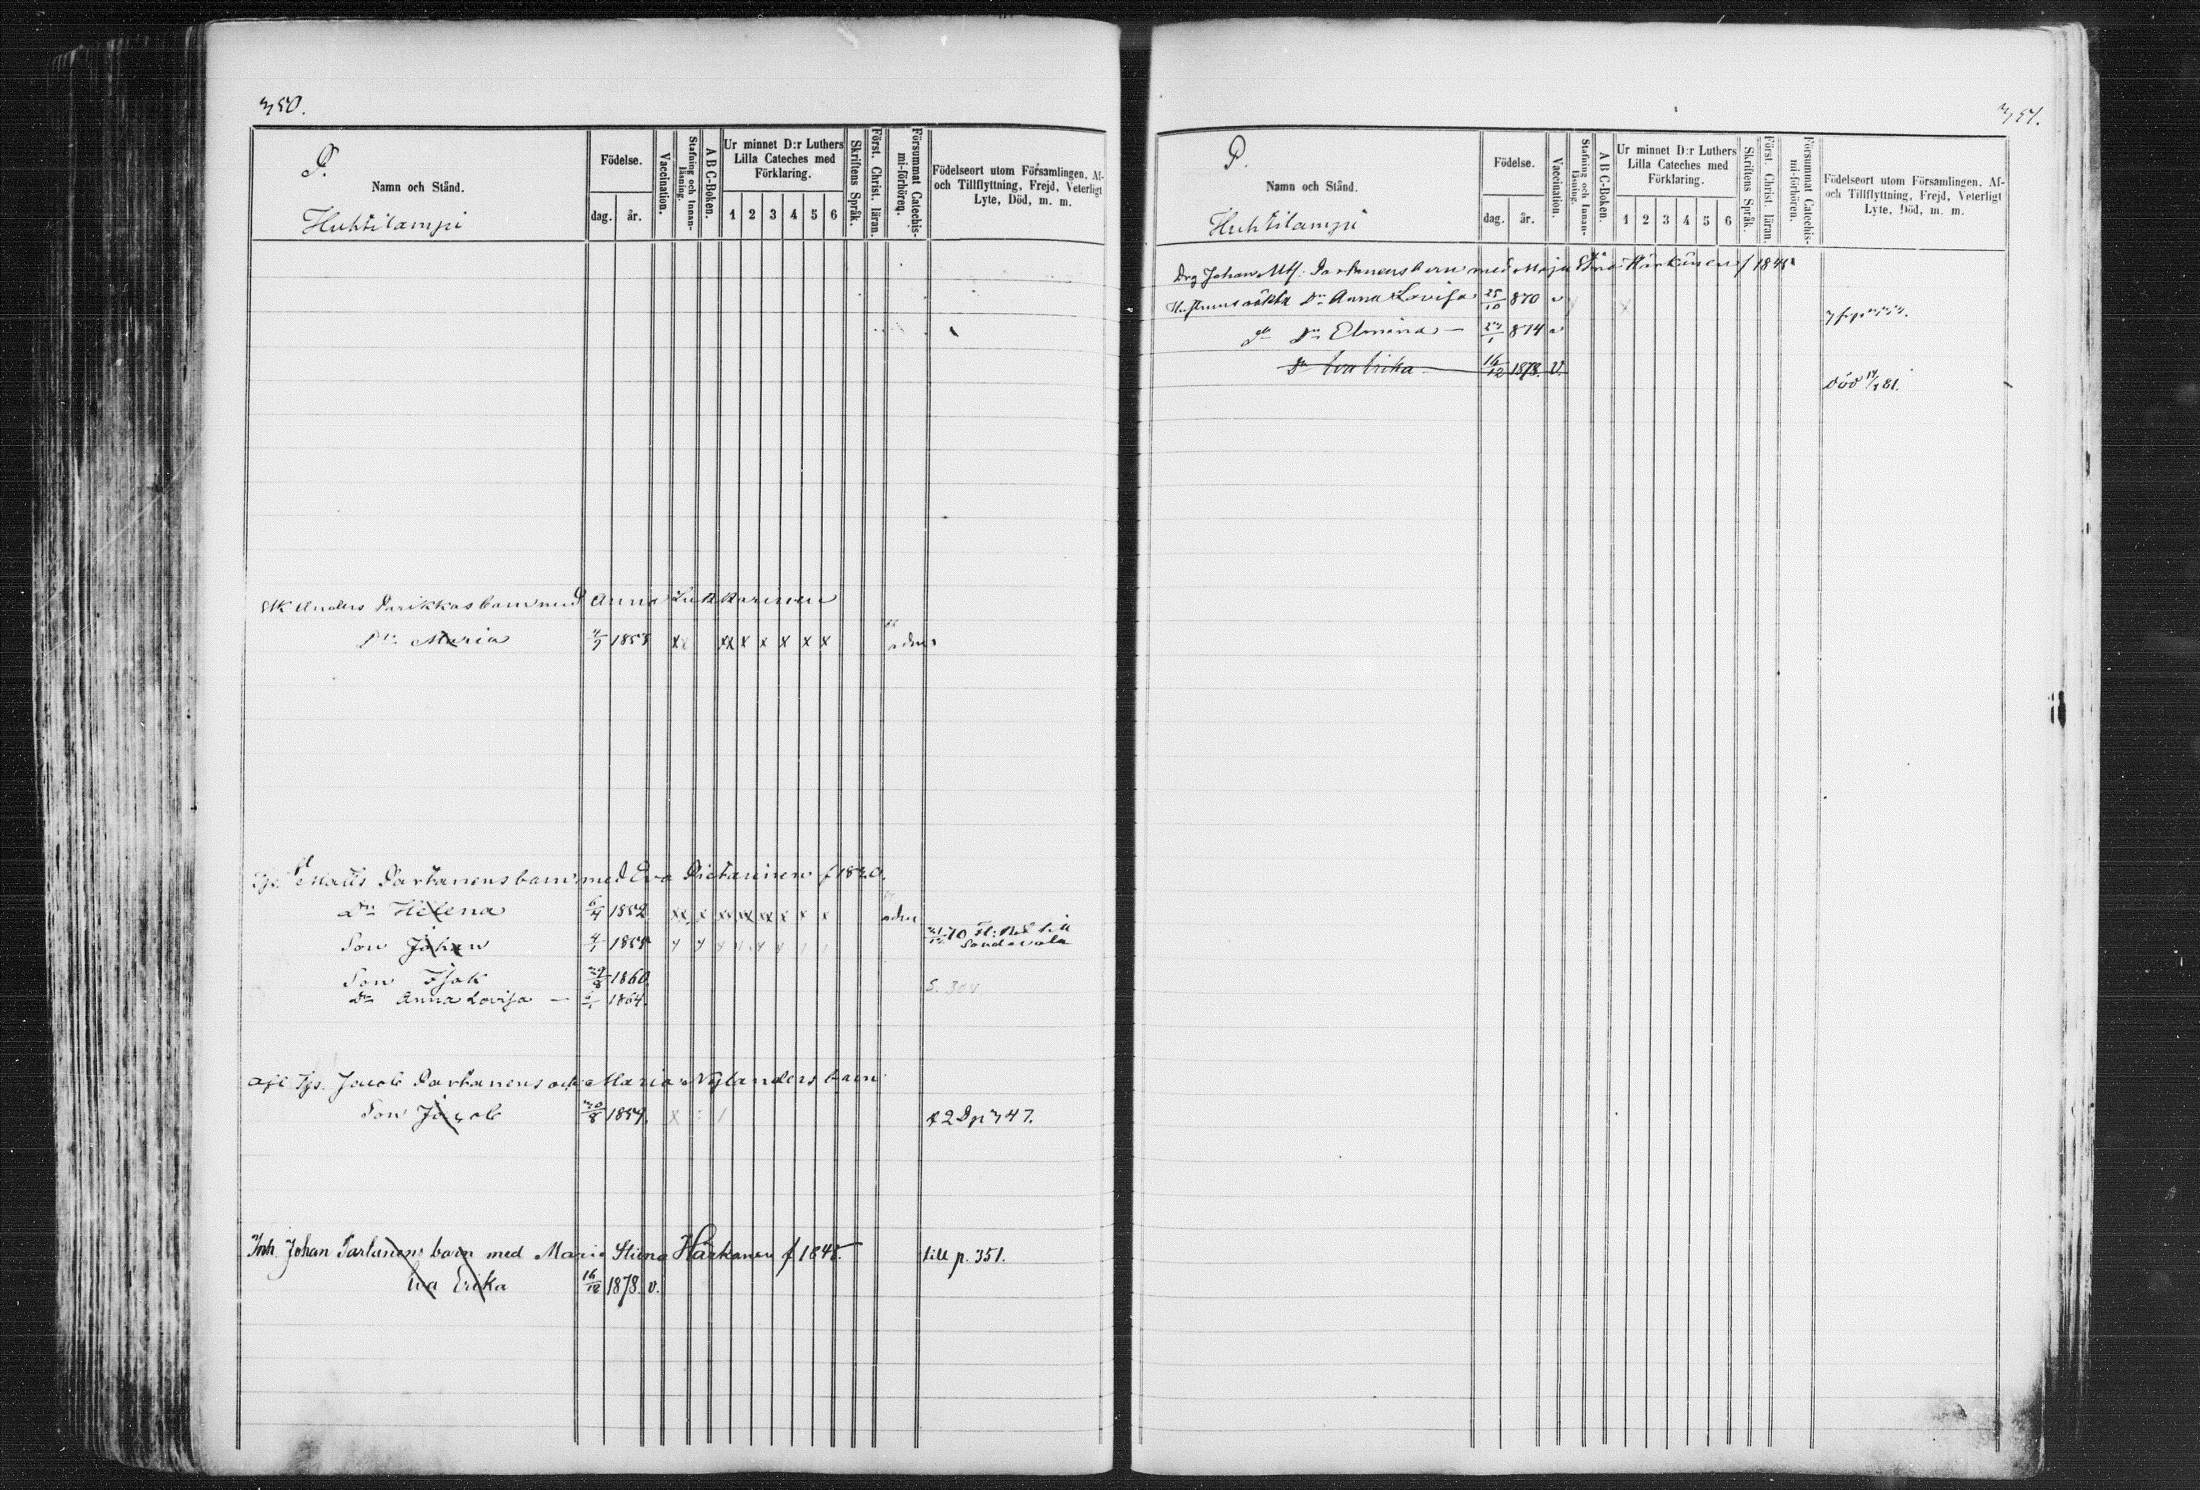 350.
P.
Namn och Stånd.
Huhtilampi
Födelse.
dag. år.
Vaccination.
Stafning och Innanläsning.
A B C-Boken.
Ur minnet D:r Luthers Lilla Cateches med Förklaring.
1 2 3 4 5 6
Skriftens Språk.
Först. Christ. läran.
Försummat Catechismi-förhören.
Födelseort utom Församlingen, Af- och Tillflyttning, Frejd, Veterligt Lyte, Död, m. m.
Anders Parikkas barn med Anna
Dr Maria 1853 xx xx x x x x x adm
Matts Partanens barn med Eva Pietarinen f 1820.
Dr Helena 6/4 1852 xx x xx xx xx x x x adm
Son Johan 4/1 1855
Son Isak 1860.
Dr Anna Lovisa — 1864.
Jacob Partanens och Maria Nylanders barn
Son Jacob 30/8 1859. x p 347.
Inh. Johan Partanens barn med Maria Stiina Härkönen f 1845. till p. 351.
Eva Erika 16/12 1878. v.
351.
P.
Namn och Stånd.
Huhtilampi
Födelse.
dag. år.
Vaccination.
Stafning och Innanläsning.
A B C-Boken.
Ur minnet D:r Luthers Lilla Cateches med Förklaring.
1 2 3 4 5 6
Skriftens Språk.
Först. Christ. läran.
Försummat Catechismi-förhören.
Födelseort utom Församlingen, Af- och Tillflyttning, Frejd, Veterligt Lyte, Död, m. m.
Drg Johan Partanens barn med Maja Stina Härkönen f 1845
Hustruns oäkta Dr Anna Lovisa 25/10 870 v
do Dr Elmina — 1 874 v
Dr Eva Erika 16/12 1878. v. död 81.